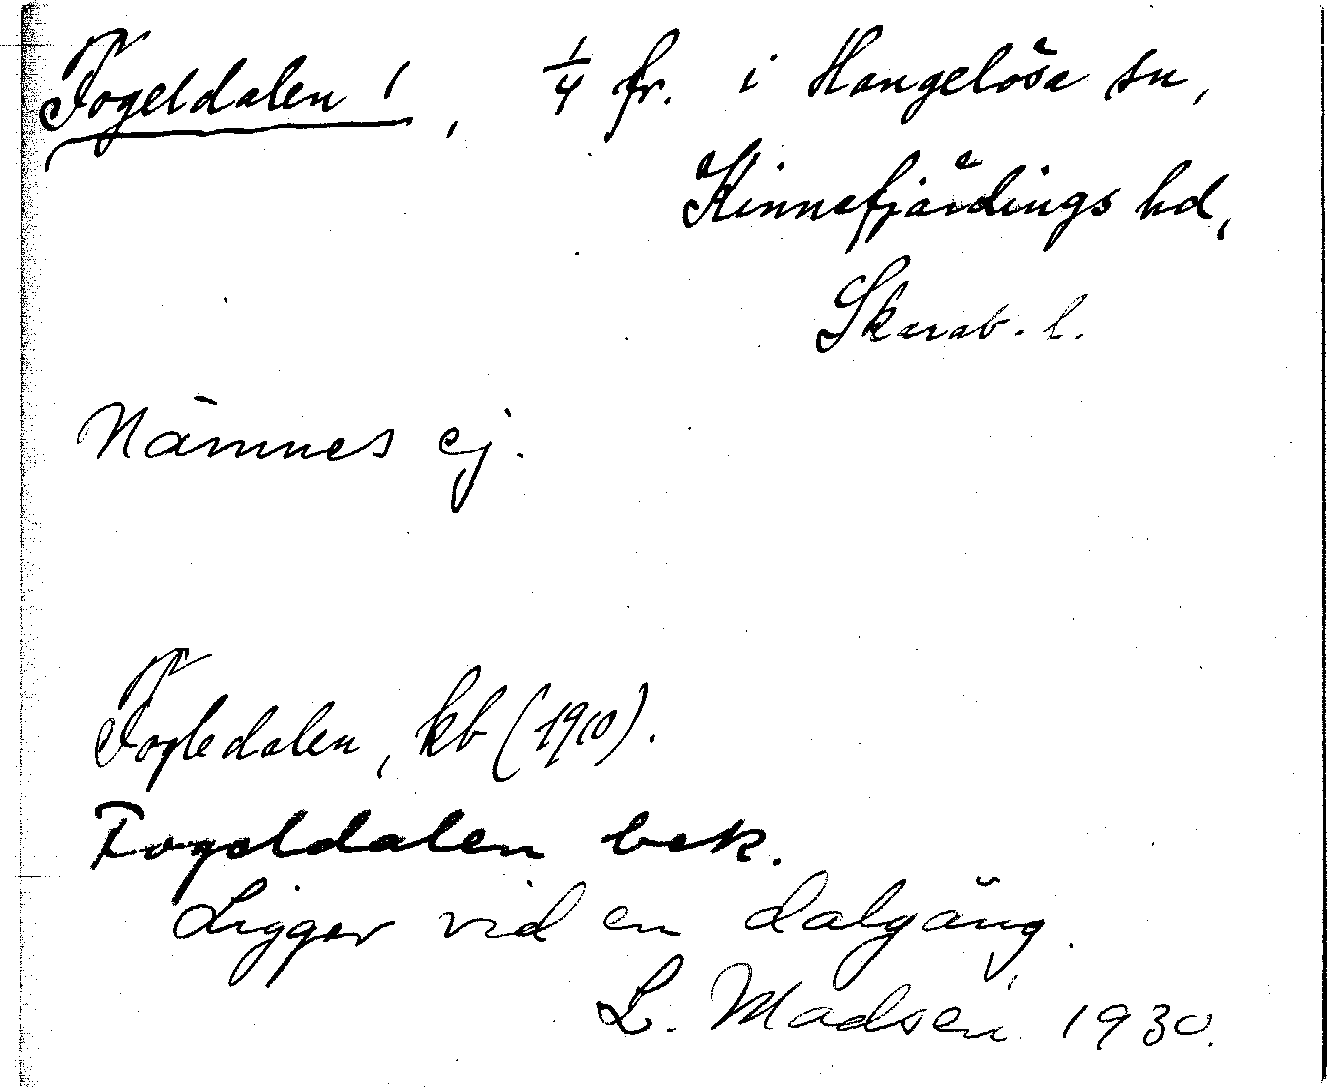 Fogeldalen 1, 1/4 fr. i Hangelösa sn,
Kinnefjärdings hd,
Skarab. l.
Nämnes ej.
Fogledalen, kb (1910).
Fogeldalen bek.
Ligger vid en dalgång.
L. Madsen 1930.